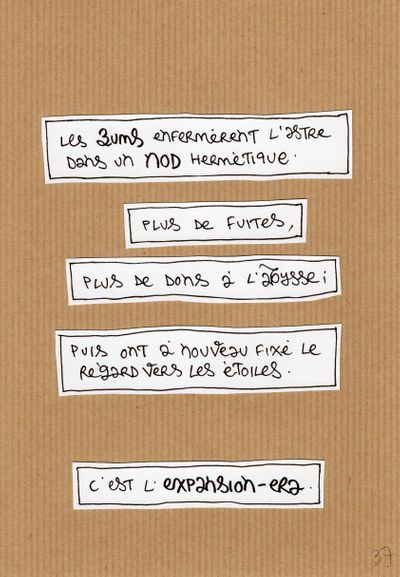 Les 3ums enfermèrent l'astre
dans un NOD hermétique.
Plus de fuites,
plus de dons à l'Abysse ;
Puis ont à nouveau fixé le
regard vers les étoiles.
C'est l'expansion-era.
37